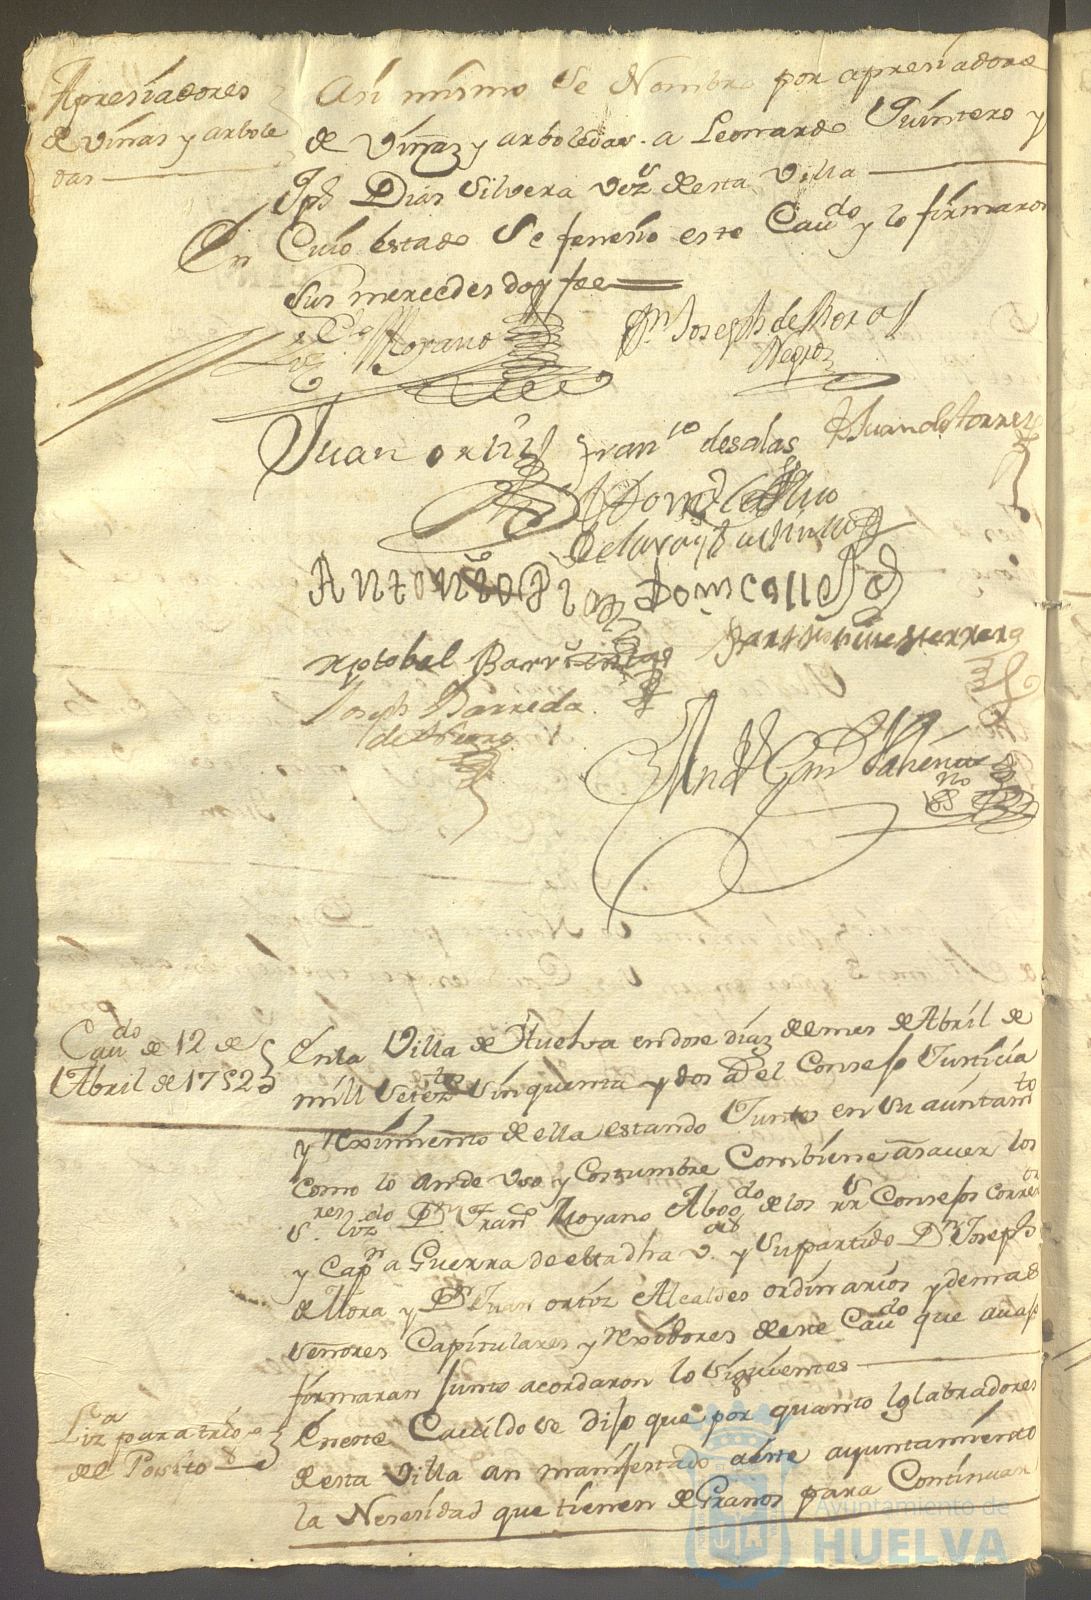 Apresiadores
de viñas y arbole
das
Asi mismo se Nombro por apresiadore
de Viñaz y arboledas. a Leonardo Quintero y
Jph Dias Silvera vezs desta Villa
En Cuio estado Se feneño este Caudo y lo firmaron
Sus mercedes doy fee
Lizdo Moyano
Dn Joseph de Mora
Negron
Juan ortiz
Franco de salas
Juan de torres
Domo
Antonio Dias
Domcalle
xptobal Barrientos
Joseph Barreda
Caudo de 12 de
Abril de 1752
En la Villa de Huelva en dose diaz de el mes de Abril de
mill Setezos Sinquenta y dos as el Consejo Justicia
y reximiento de ella estando Juntos en su aiuntamto
como lo an de uso y Costumbre Combiene asauer los
Sres lizdo Dn Franco Moyano Abogdo de los rrs Consejos correor
y Capn a Guerra de esta dha va y su partido Dn Joseph
de Mora y Dn Juan ortiz Alcaldes ordinarios y demas
señores Capitulares y rexidores deste Caudo que auajo
firmaran Junto acordaron lo siguiente
Liza para trigo
del Posito
En este Cauildo se dijo que por quanto los labradores
desta Villa an manifestado a este ayuntamiento
la Nesesidad que tienen de Granos para Continuar
Ayuntamiento de
HUELVA